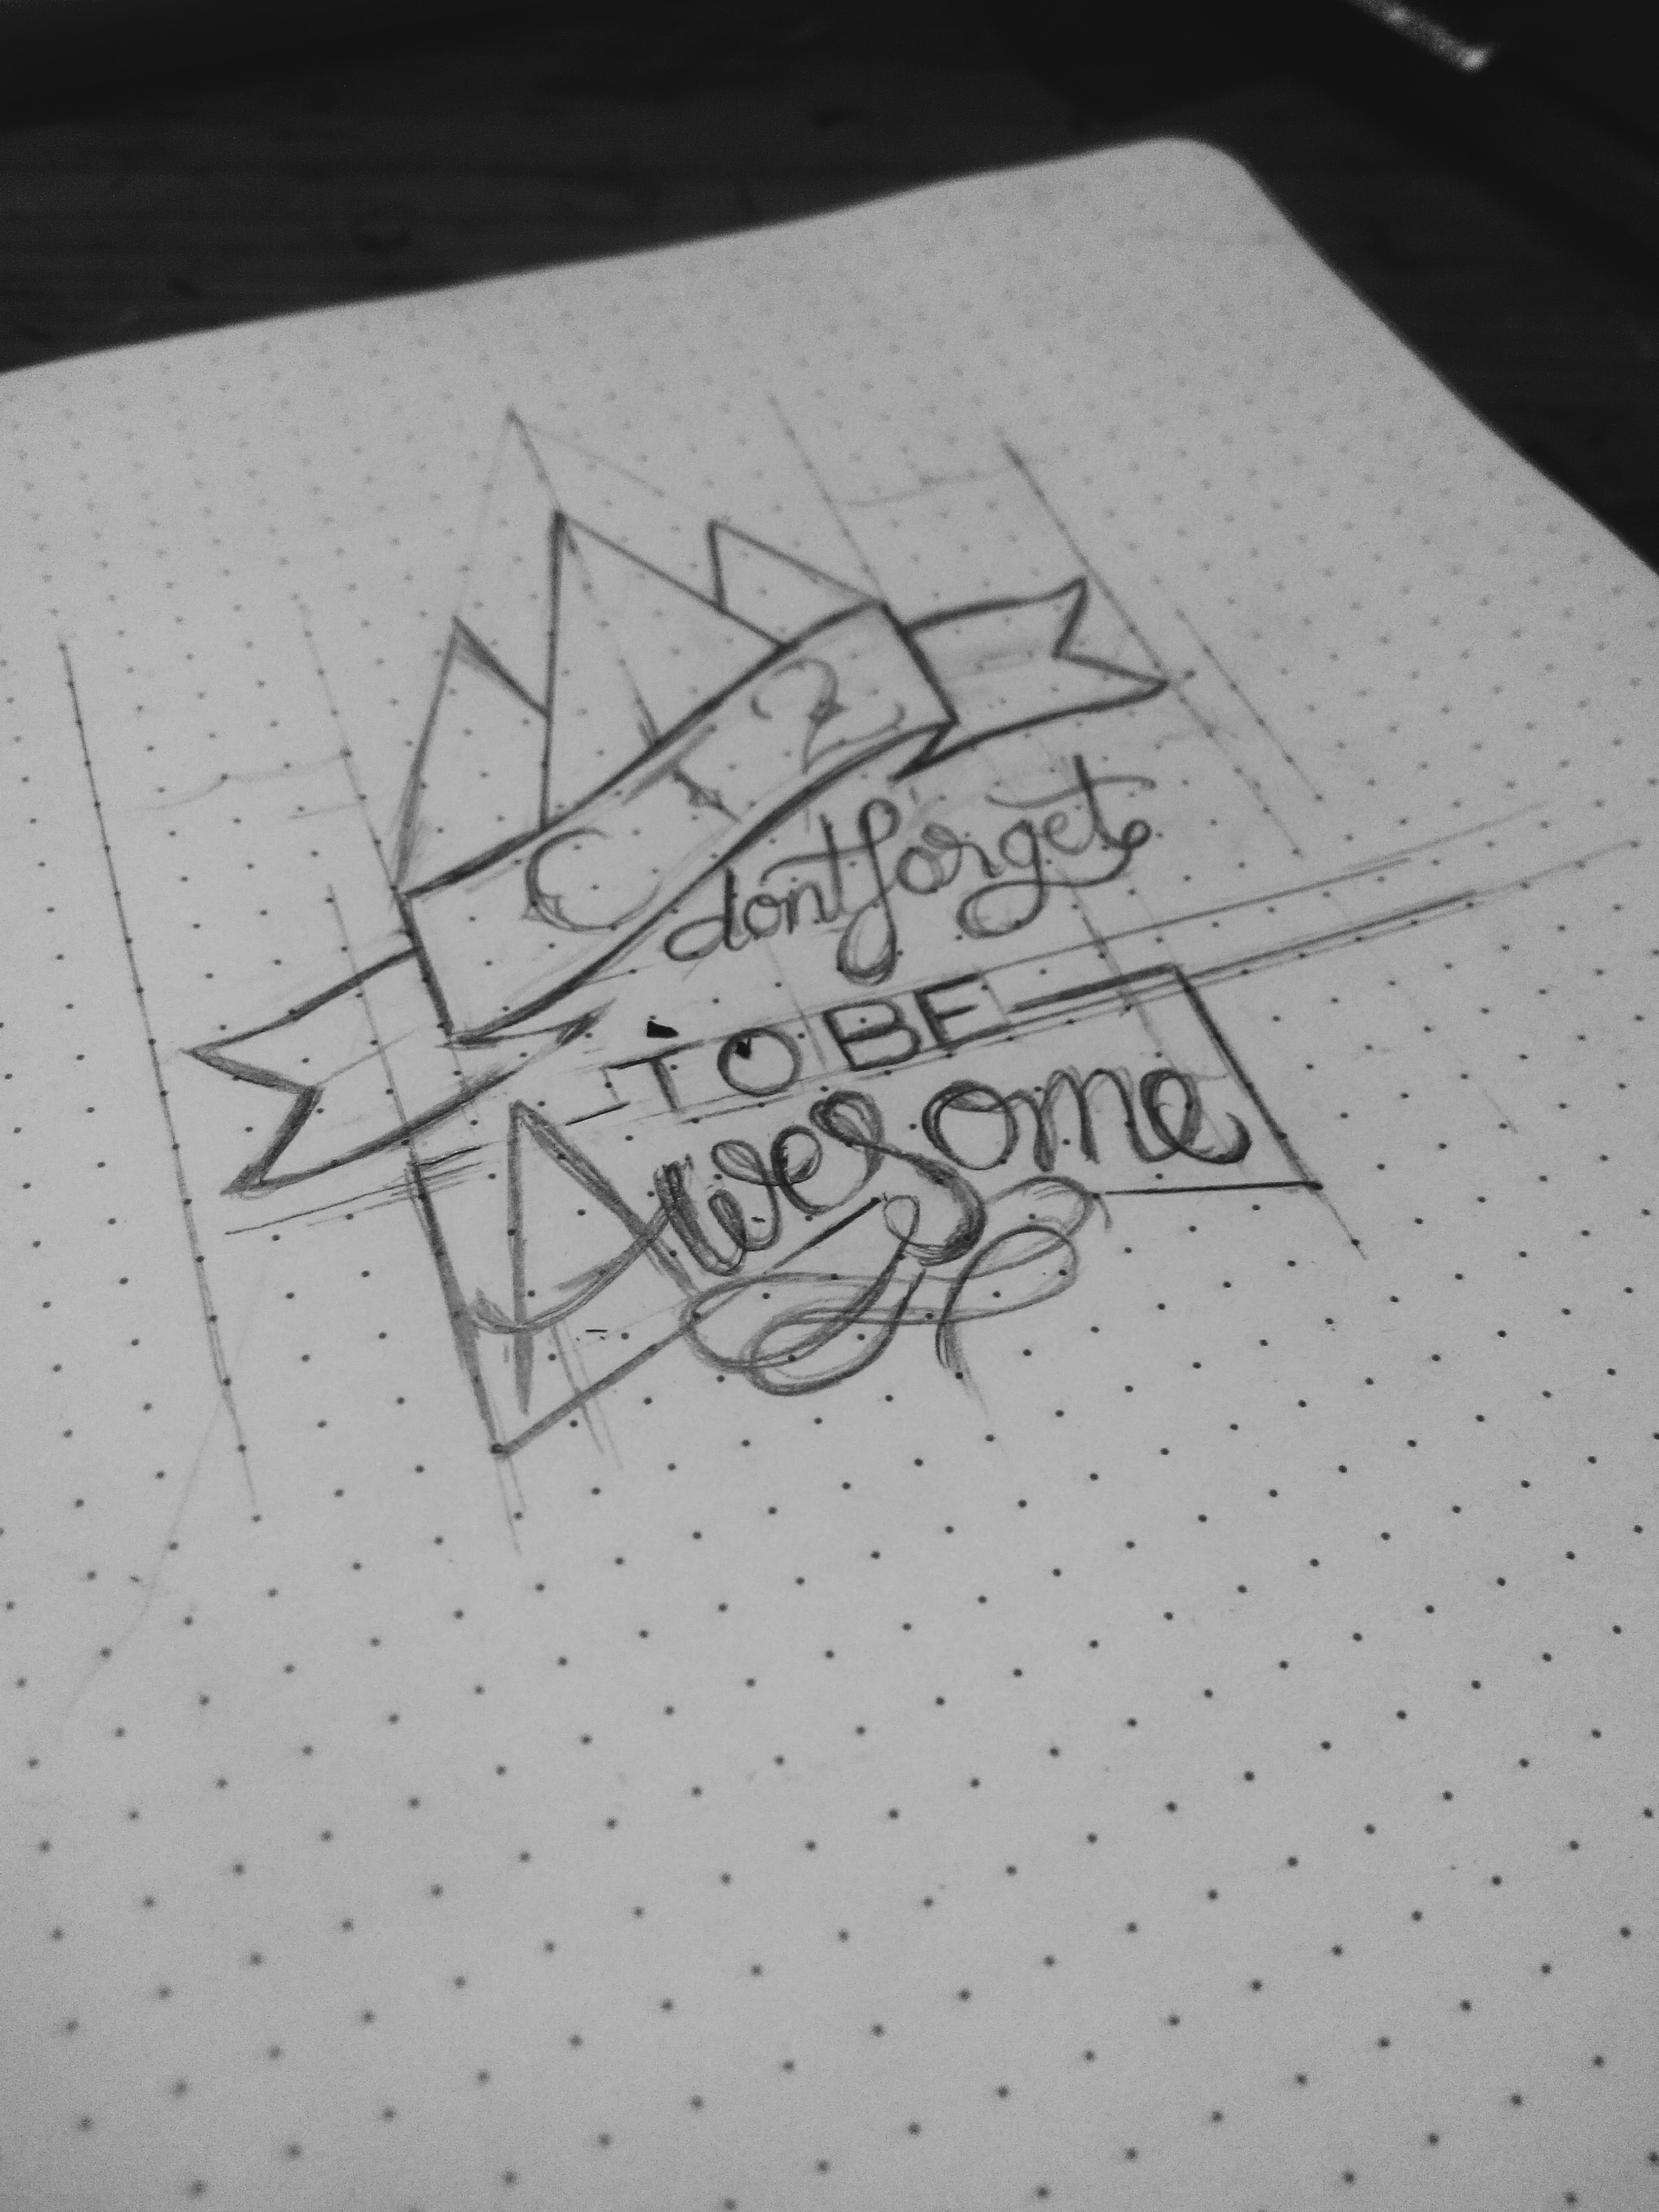 dont forget
TO BE
Awesome